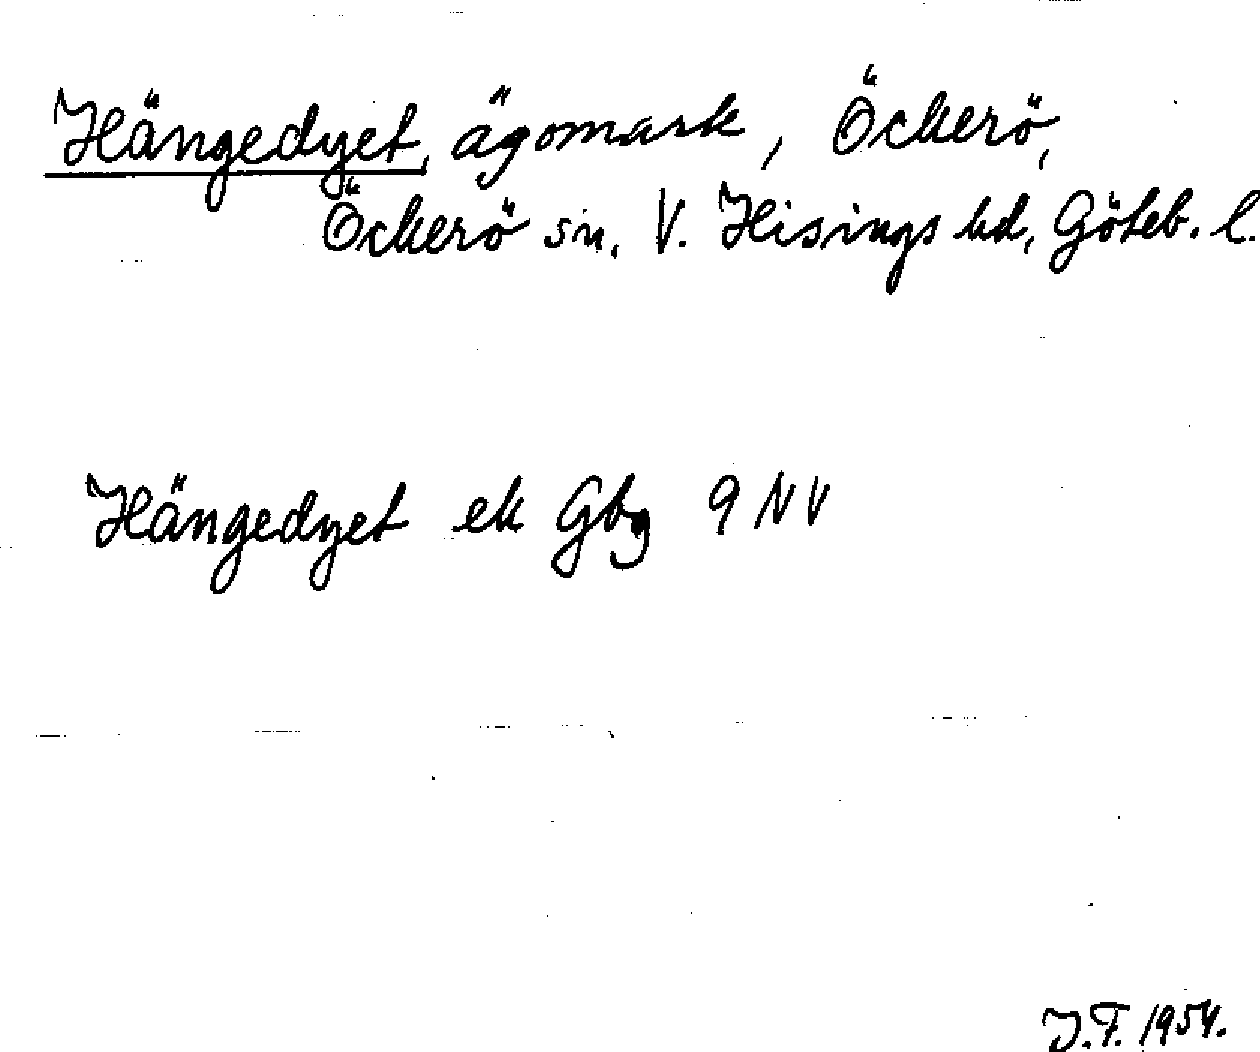 Hängedyet, ägomark, Öckerö,
Öckerö sn, V. Hisings hd, Göteb. l.
Hängedyet ek Gbg 9 NV
J.F. 1954.